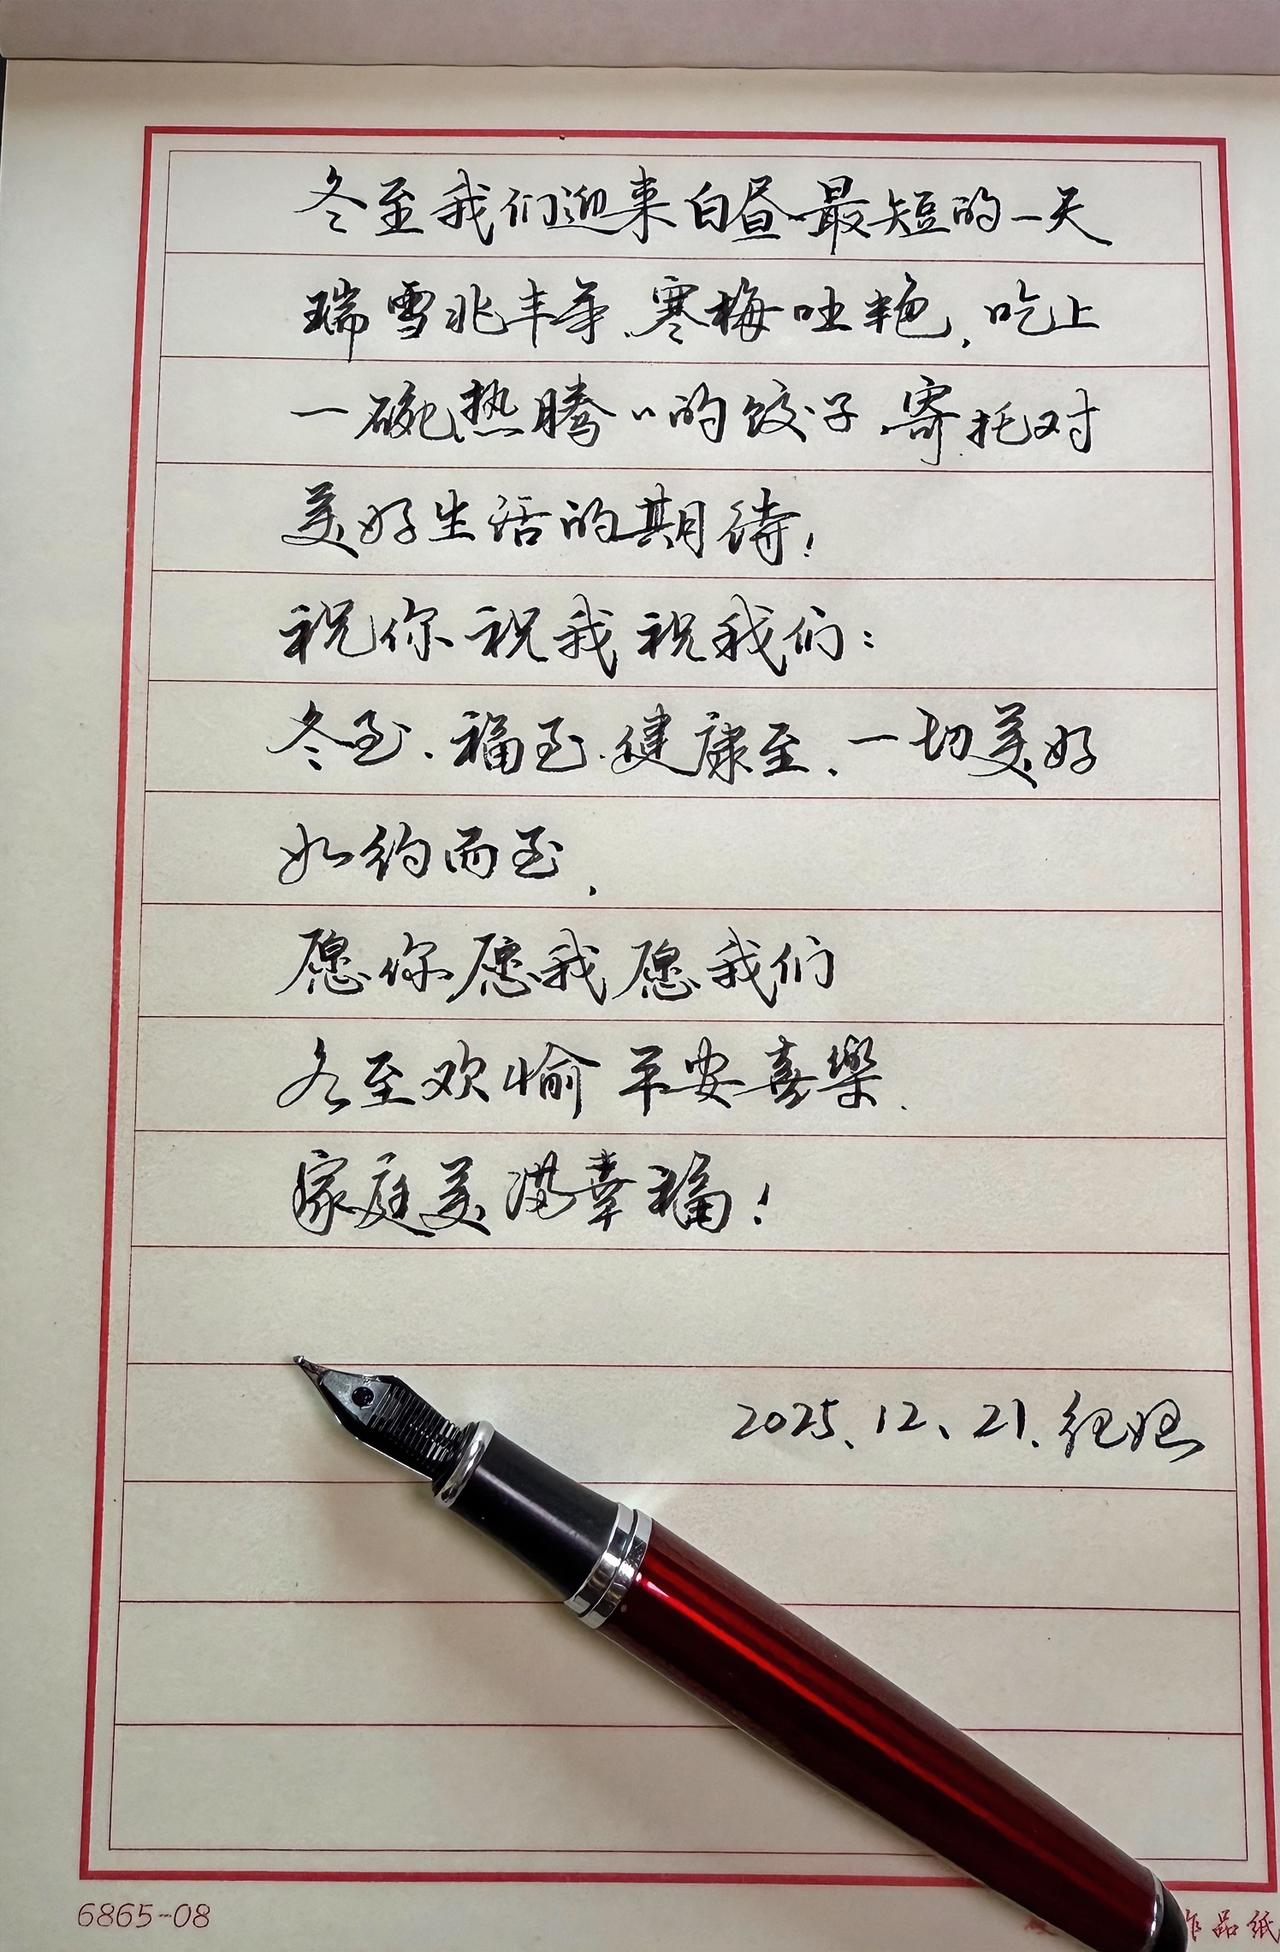 冬至我们迎来白昼最短的一天
瑞雪兆丰年、寒梅吐艳,吃上
一碗热腾〃的饺子、寄托对
美好生活的期待!
祝你祝我祝我们:
冬至、福至、健康至、一切美好
如约而至,
愿你愿我愿我们
冬至欢愉平安喜樂.
家庭美满幸福!
2025、12、21.
6865-08
作品纸